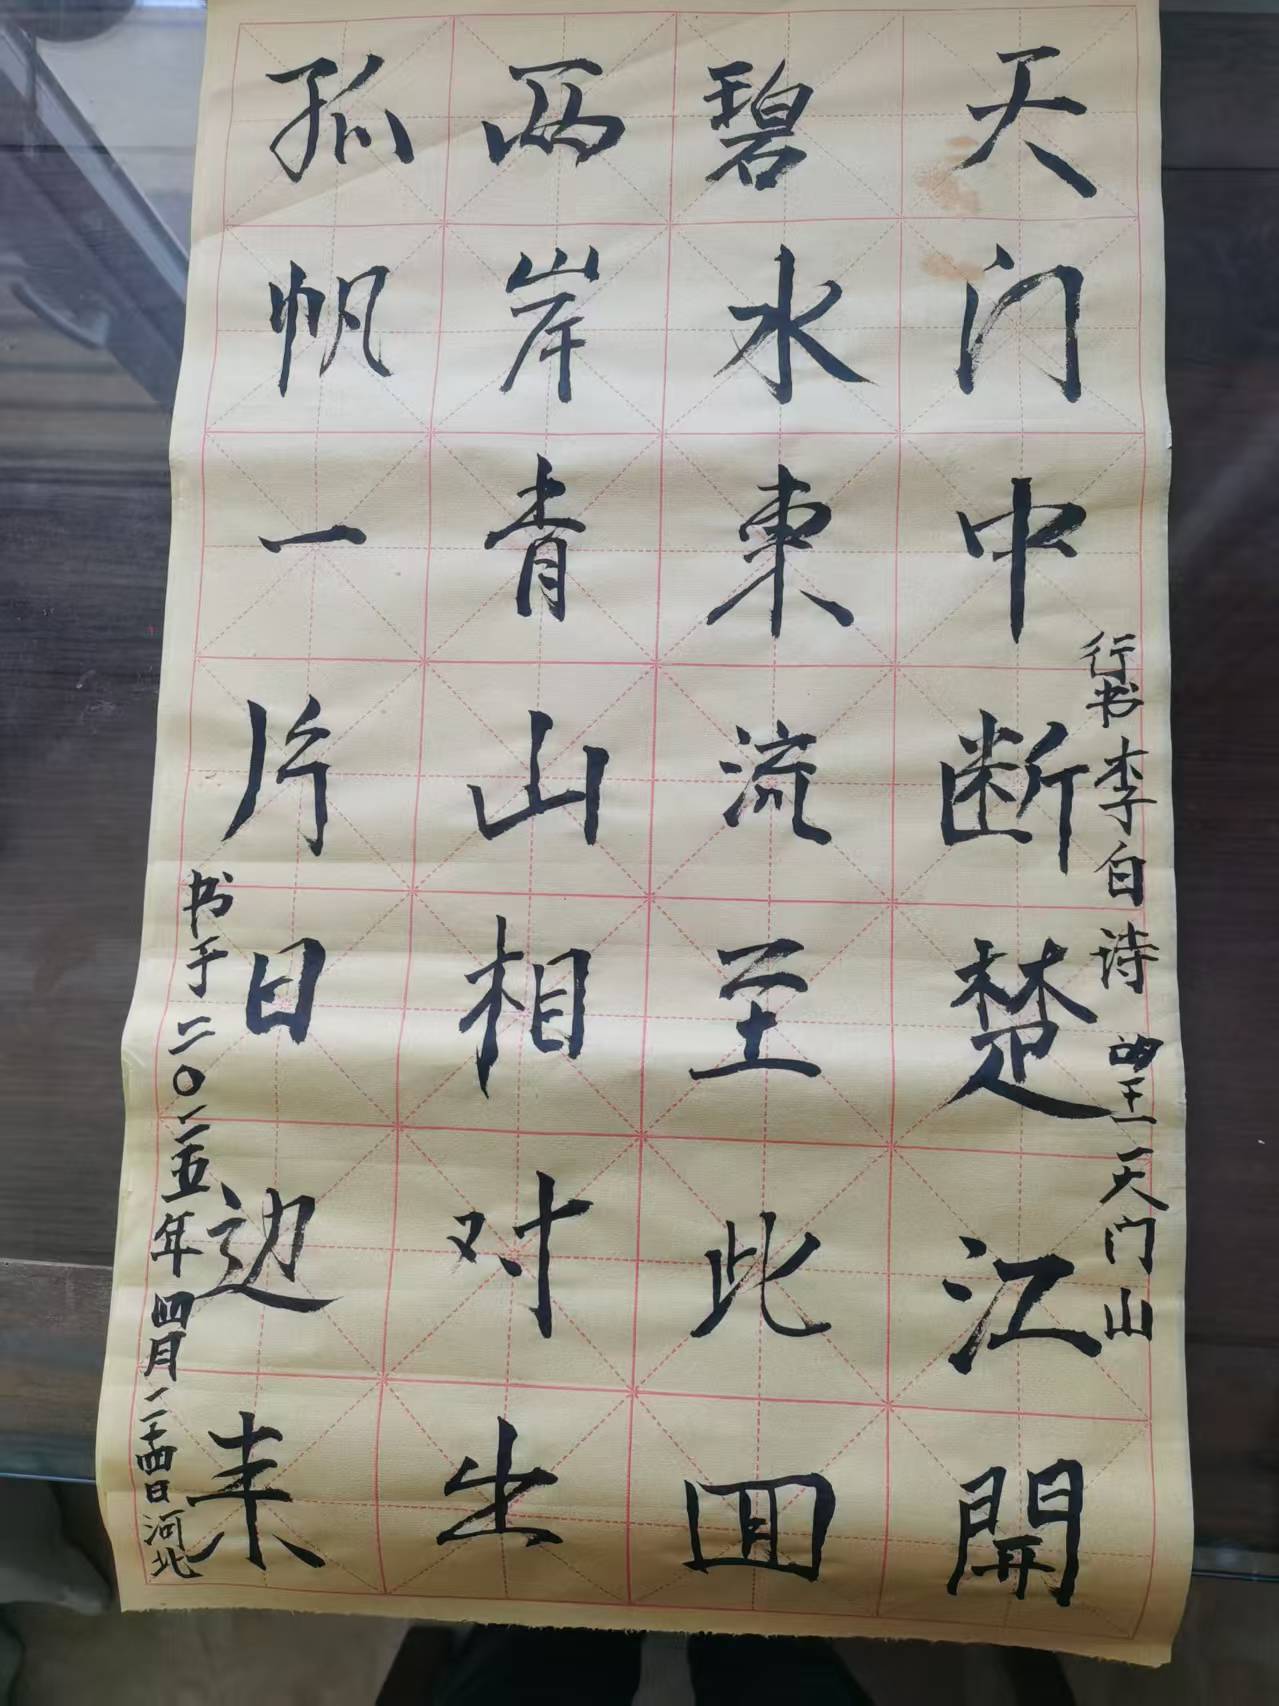 行书李白诗望天门山
天门中断楚江開
碧水東流至此回
两岸青山相对出
孤帆一片日边来
书于二〇二五年四月二十四日河北